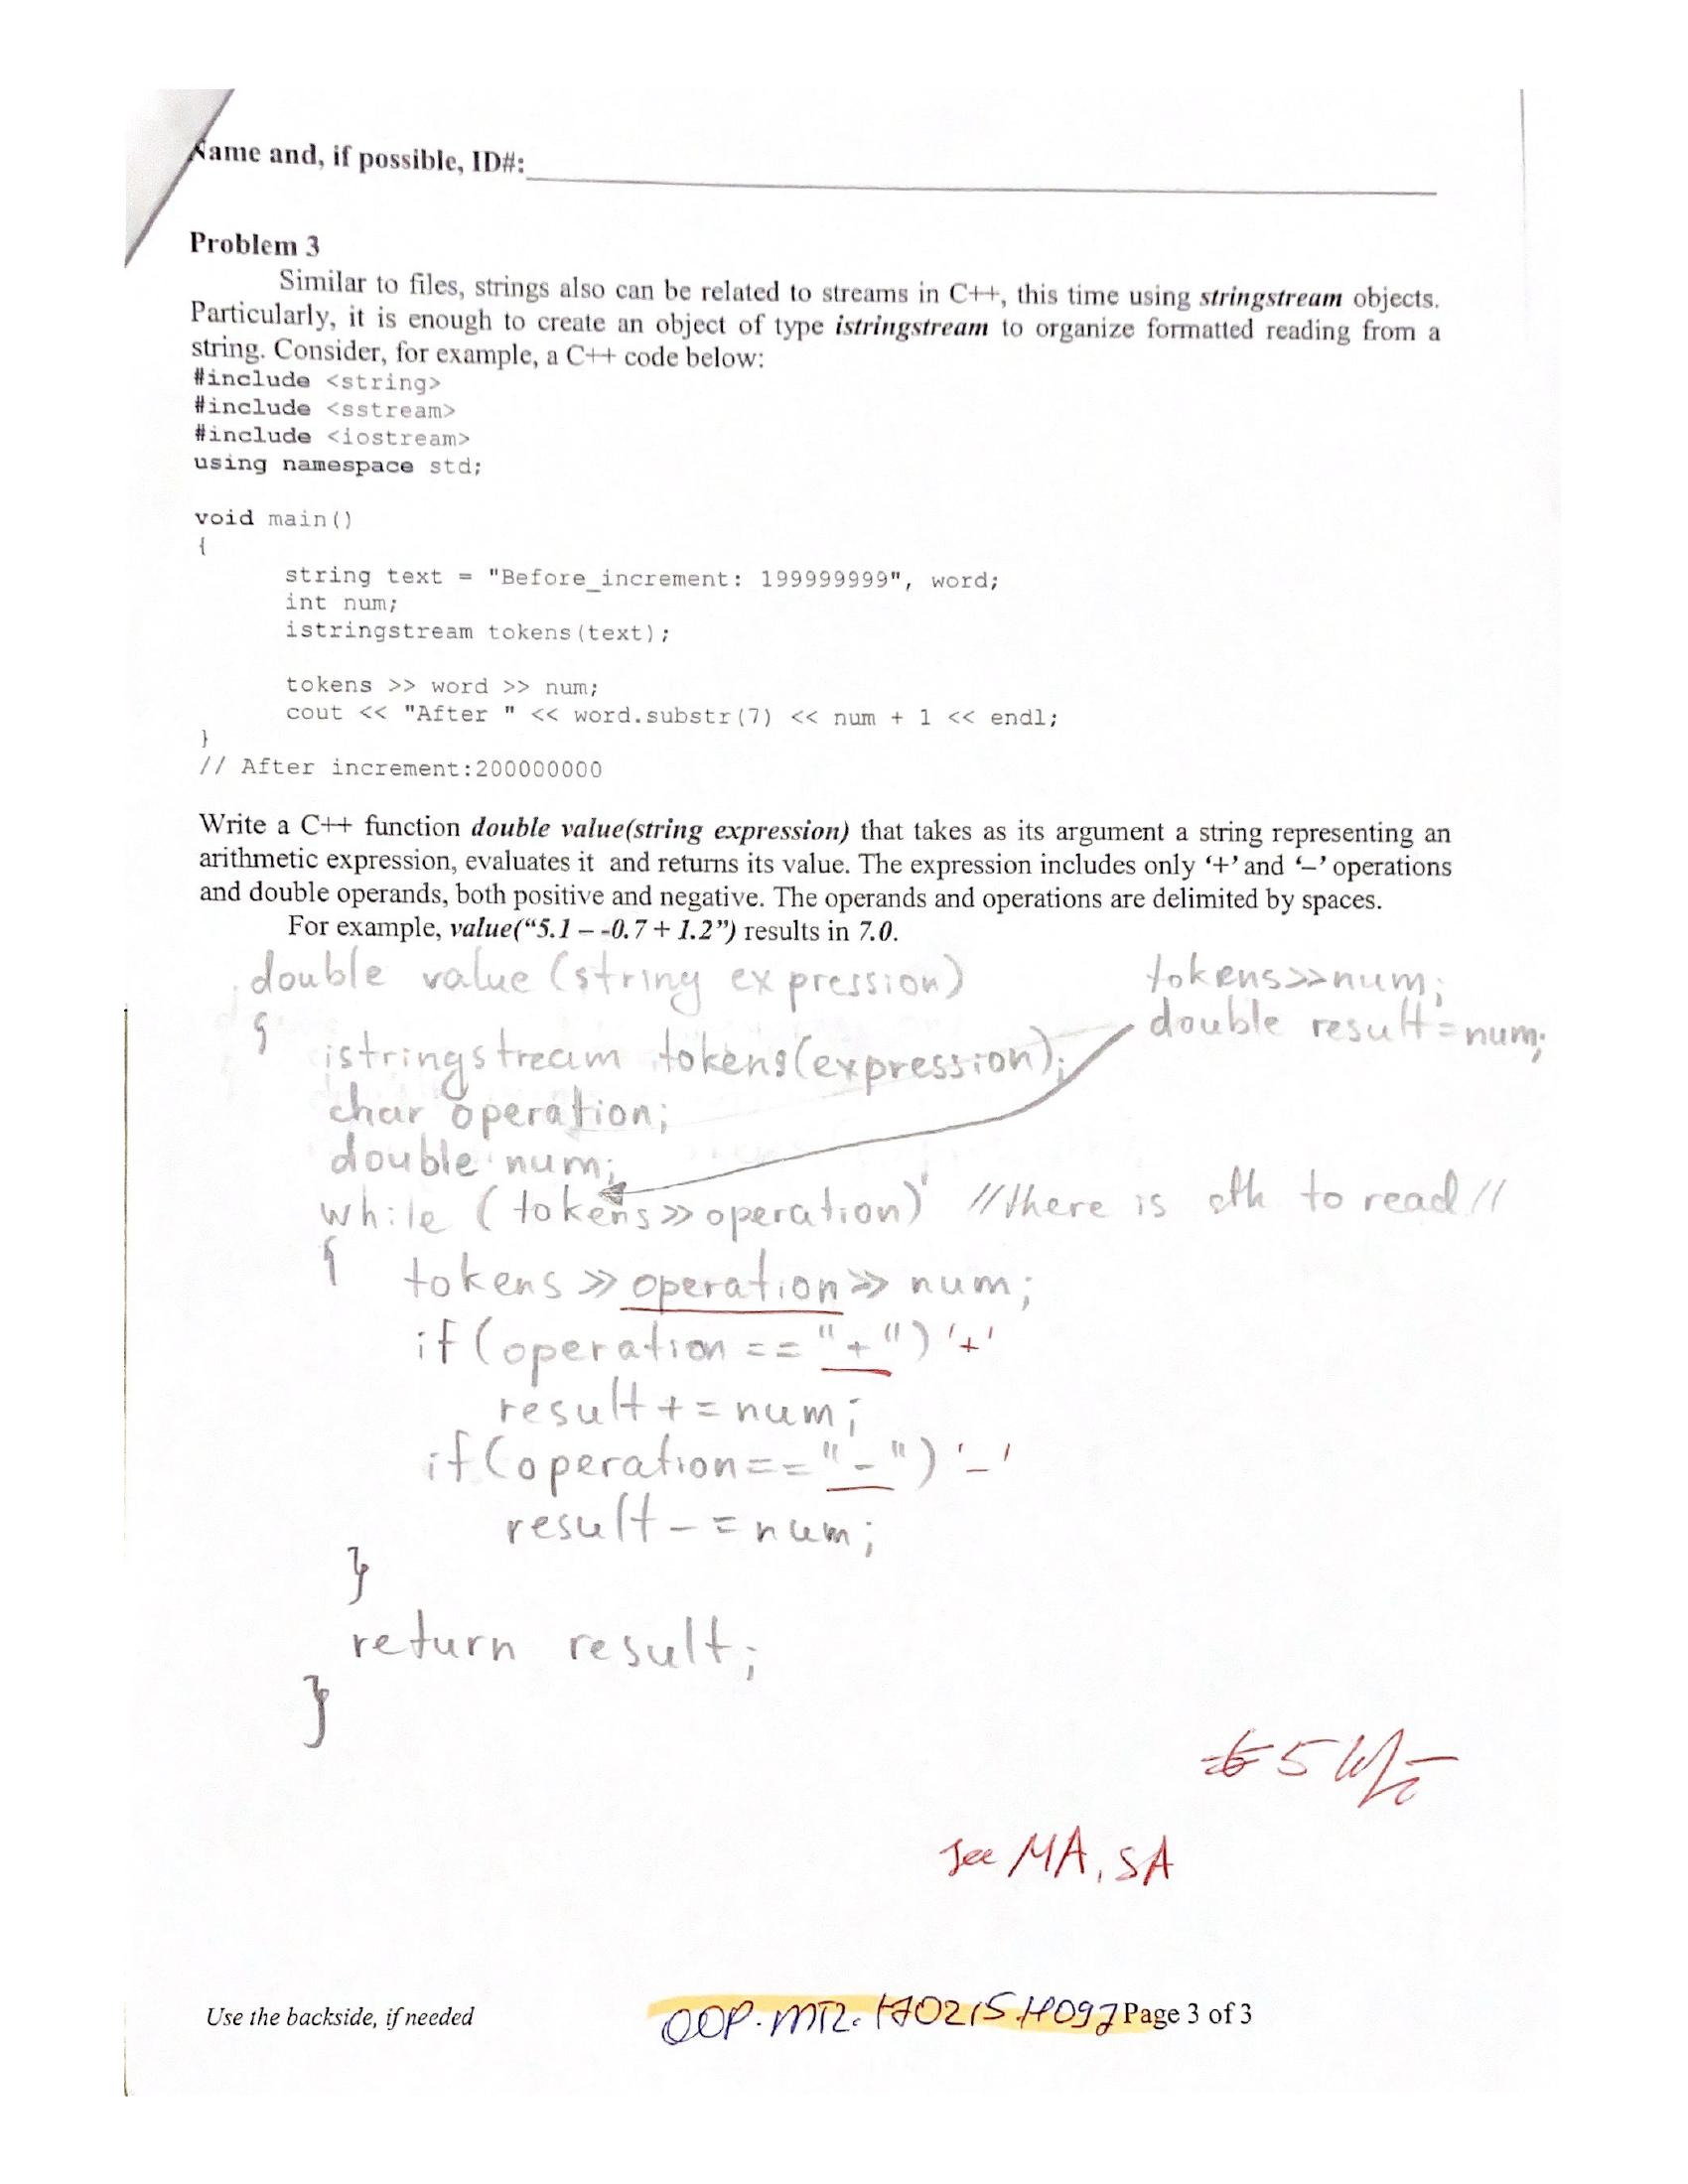 Name and, if possible, ID#:
Problem 3
Similar to files, strings also can be related to streams in C++, this time using stringstream objects.
Particularly, it is enough to create an object of type istringstream to organize formatted reading from a
string. Consider, for example, a C++ code below:
#include <string>
#include <sstream>
#include <iostream>
using namespace std;
void main()
{
string text = "Before_increment: 199999999", word;
int num;
istringstream tokens(text);
tokens >> word >> num;
cout << "After " << word.substr(7) << num + 1 << endl;
}
// After increment:200000000
Write a C++ function double value(string expression) that takes as its argument a string representing an
arithmetic expression, evaluates it and returns its value. The expression includes only ‘+’ and ‘–’ operations
and double operands, both positive and negative. The operands and operations are delimited by spaces.
For example, value(“5.1 – -0.7 + 1.2”) results in 7.0.
double value (string expression)
{
tokens>>num;
double result=num;
istringstream tokens(expression);
char operation;
double num;
while (tokens>>operation) //there is sth to read//
{ tokens >> operation >> num;
if (operation == "+") '+'
result += num;
if (operation == "-") '-'
result -= num;
}
return result;
}
5
See MA, SA
Use the backside, if needed
OOP.MT2.170215.H097 Page 3 of 3